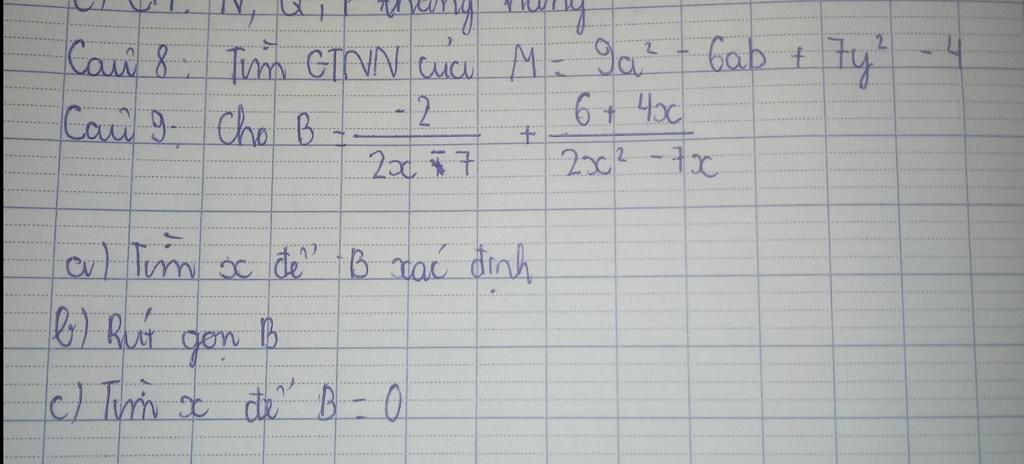 N, Q, P thẳng hàng
Câu 8: Tìm GTNN của M = 9a² - 6ab + 7y² - 4
Câu 9: Cho B = -2/(2x - 7) + (6 + 4x)/(2x² - 7x)
a) Tìm x để B xác định
b) Rút gọn B
c) Tìm x để B = 0